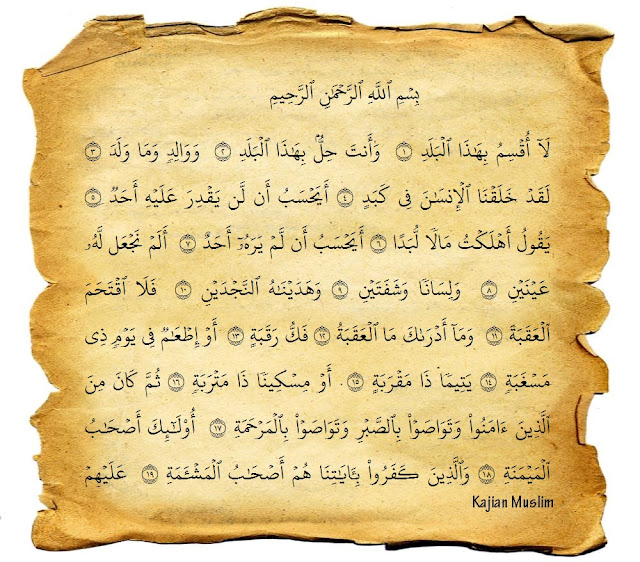 بِسْمِ ٱللَّهِ ٱلرَّحْمَٰنِ ٱلرَّحِيمِ
لَآ أُقْسِمُ بِهَٰذَا ٱلْبَلَدِ ١ وَأَنتَ حِلٌّۢ بِهَٰذَا ٱلْبَلَدِ ٢ وَوَالِدٍ وَمَا وَلَدَ ٣
لَقَدْ خَلَقْنَا ٱلْإِنسَٰنَ فِى كَبَدٍ ٤ أَيَحْسَبُ أَن لَّن يَقْدِرَ عَلَيْهِ أَحَدٌ ٥
يَقُولُ أَهْلَكْتُ مَالًا لُّبَدًا ٦ أَيَحْسَبُ أَن لَّمْ يَرَهُۥٓ أَحَدٌ ٧ أَلَمْ نَجْعَل لَّهُۥ
عَيْنَيْنِ ٨ وَلِسَانًا وَشَفَتَيْنِ ٩ وَهَدَيْنَٰهُ ٱلنَّجْدَيْنِ ١٠ فَلَا ٱقْتَحَمَ
ٱلْعَقَبَةَ ١١ وَمَآ أَدْرَىٰكَ مَا ٱلْعَقَبَةُ ١٢ فَكُّ رَقَبَةٍ ١٣ أَوْ إِطْعَٰمٌ فِى يَوْمٍ ذِى
مَسْغَبَةٍ ١٤ يَتِيمًا ذَا مَقْرَبَةٍ ١٥ أَوْ مِسْكِينًا ذَا مَتْرَبَةٍ ١٦ ثُمَّ كَانَ مِنَ
ٱلَّذِينَ ءَامَنُوا۟ وَتَوَاصَوْا۟ بِٱلصَّبْرِ وَتَوَاصَوْا۟ بِٱلْمَرْحَمَةِ ١٧ أُو۟لَٰٓئِكَ أَصْحَٰبُ
ٱلْمَيْمَنَةِ ١٨ وَٱلَّذِينَ كَفَرُوا۟ بِـَٔايَٰتِنَا هُمْ أَصْحَٰبُ ٱلْمَشْـَٔمَةِ ١٩ عَلَيْهِمْ
Kajian Muslim